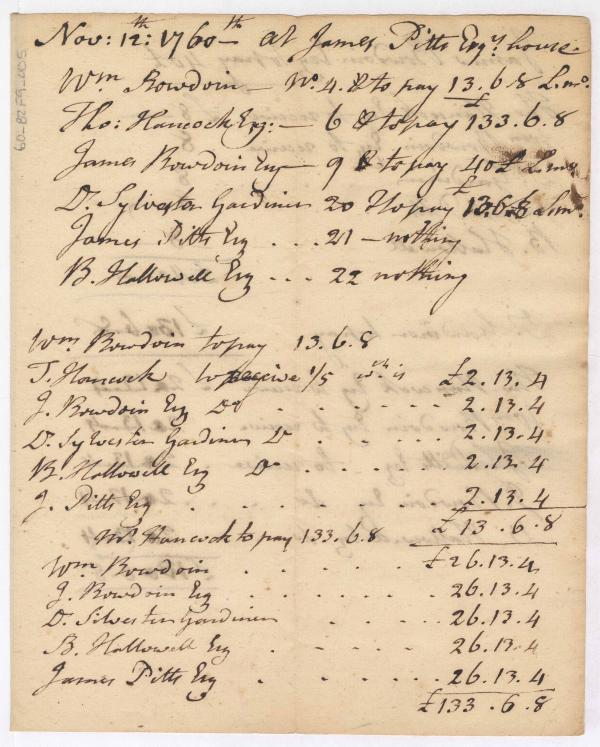 Nov: 12:th 1760th at James Pitts Esqr. house
Wm Bowdoin — No. 4. & to pay 13.6.8 L.mo.
Tho: Hancock Esq: — 6 & to pay £133.6.8
James Bowdoin Esq — 9 & to pay 40£ L.mo.
Dr. Sylvester Gardiner 20 & to pay £13.6.8 L.mo.
James Pitts Esq . . . 21 — nothing
B. Hallowell Esq . . . 22 nothing
Wm. Bowdoin to pay 13.6.8
T. Hancock to receive 1/5 wch is £2.13.4
J. Bowdoin Esq Do . . . . . . 2.13.4
Dr. Sylvester Gardiner Do . . . . 2.13.4
B. Hallowell Esq Do . . . . . 2.13.4
J. Pitts Esq . . . . . . . . 2.13.4
£13.6.8
Mr. Hancock to pay 133.6.8
Wm Bowdoin . . . . . . £26.13.4
J. Bowdoin Esq . . . . . . 26.13.4
Dr. Silvester Gardiner . . . . 26.13.4
B. Hallowell Esq . . . . . 26.13.4
James Pitts Esq . . . . . 26.13.4
£133.6.8